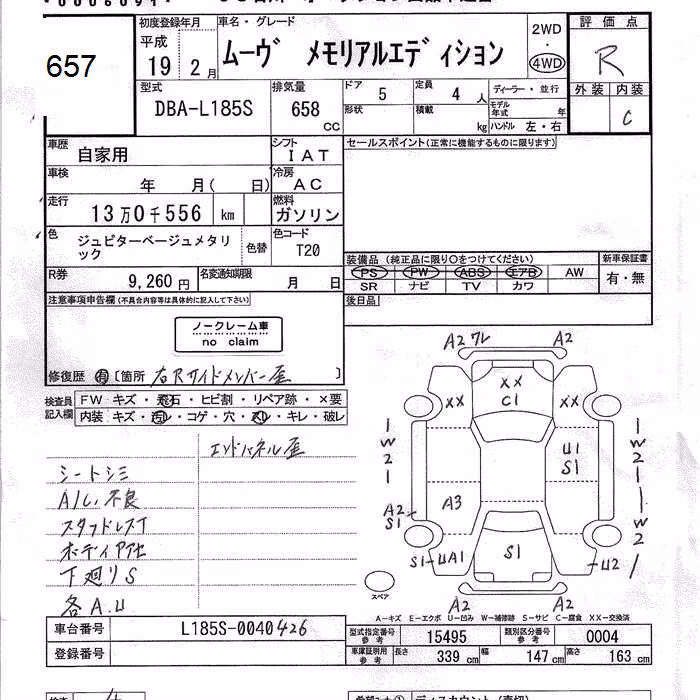 657
初度登録年月 車名・グレード
平成
19 2月 ムーヴ メモリアルエディション
2WD
・
4WD
評価点
R
外装 内装
C
型式 排気量
DBA-L185S 658 CC
ドア 5 定員 4人
形状 積載 kg
ディーラー・並行
モデル年式 年
ハンドル 左・右
車歴 自家用 シフト IAT
セールスポイント(正常に機能するものに限ります)
車検 年 月( 日) 冷房 AC
走行 13万0千556 km 燃料 ガソリン
色 ジュピターベージュメタリック 色替 色コード T20
装備品(純正品に限り○をつけてください) 新車保証書
PS PW ABS エアB AW 有・無
SR ナビ TV カワ
R券 9,260円 名変通知期限 月 日
後日品
注意事項申告欄(不具合内容等は具体的に記入して下さい)
ノークレーム車
no claim
修復歴 有 [箇所 右Rサイドメンバー歪 ]
検査員記入欄
FW キズ・飛石・ヒビ割・リペア跡・×要
内装 キズ・汚レ・コゲ・穴・スレ・キレ・破レ
エンドパネル歪
シートシミ
A/C 不良
スタッドレスT
ボディ
下廻りS
各A.U
A2 ワレ A2
XX
C1
XX XX
1
W
2
1
U1
S1
A3
A2
S1
1
W
2
1
S1 UA1
S1
U2
1
W
2
A2 A2
スペア
A-キズ E-エクボ U-凹み W-補修跡 S-サビ C-腐食 XX-交換済
車台番号 L185S-0040426
登録番号
型式指定番号 参考 15495 類別区分番号 参考 0004
車庫証明用 参考 長さ 339 cm 幅 147 cm 高さ 163 cm